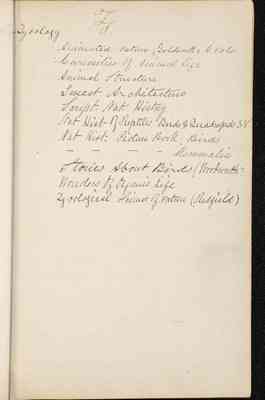 Zy
Zoology
Animated nature (Goldsmith) 6 vols
Curiosities of Animal Life
Animal Structure
Insect Architecture
Script. Nat. History
Nat Hist. of Reptiles Birds & Quadrupeds 3 V.
Nat Hist. Picture Book, Birds
— — — — Mammalia
Stories About Birds (Woodworth)
Wonders of Organic Life
Zoological Science of nature (Redfield)